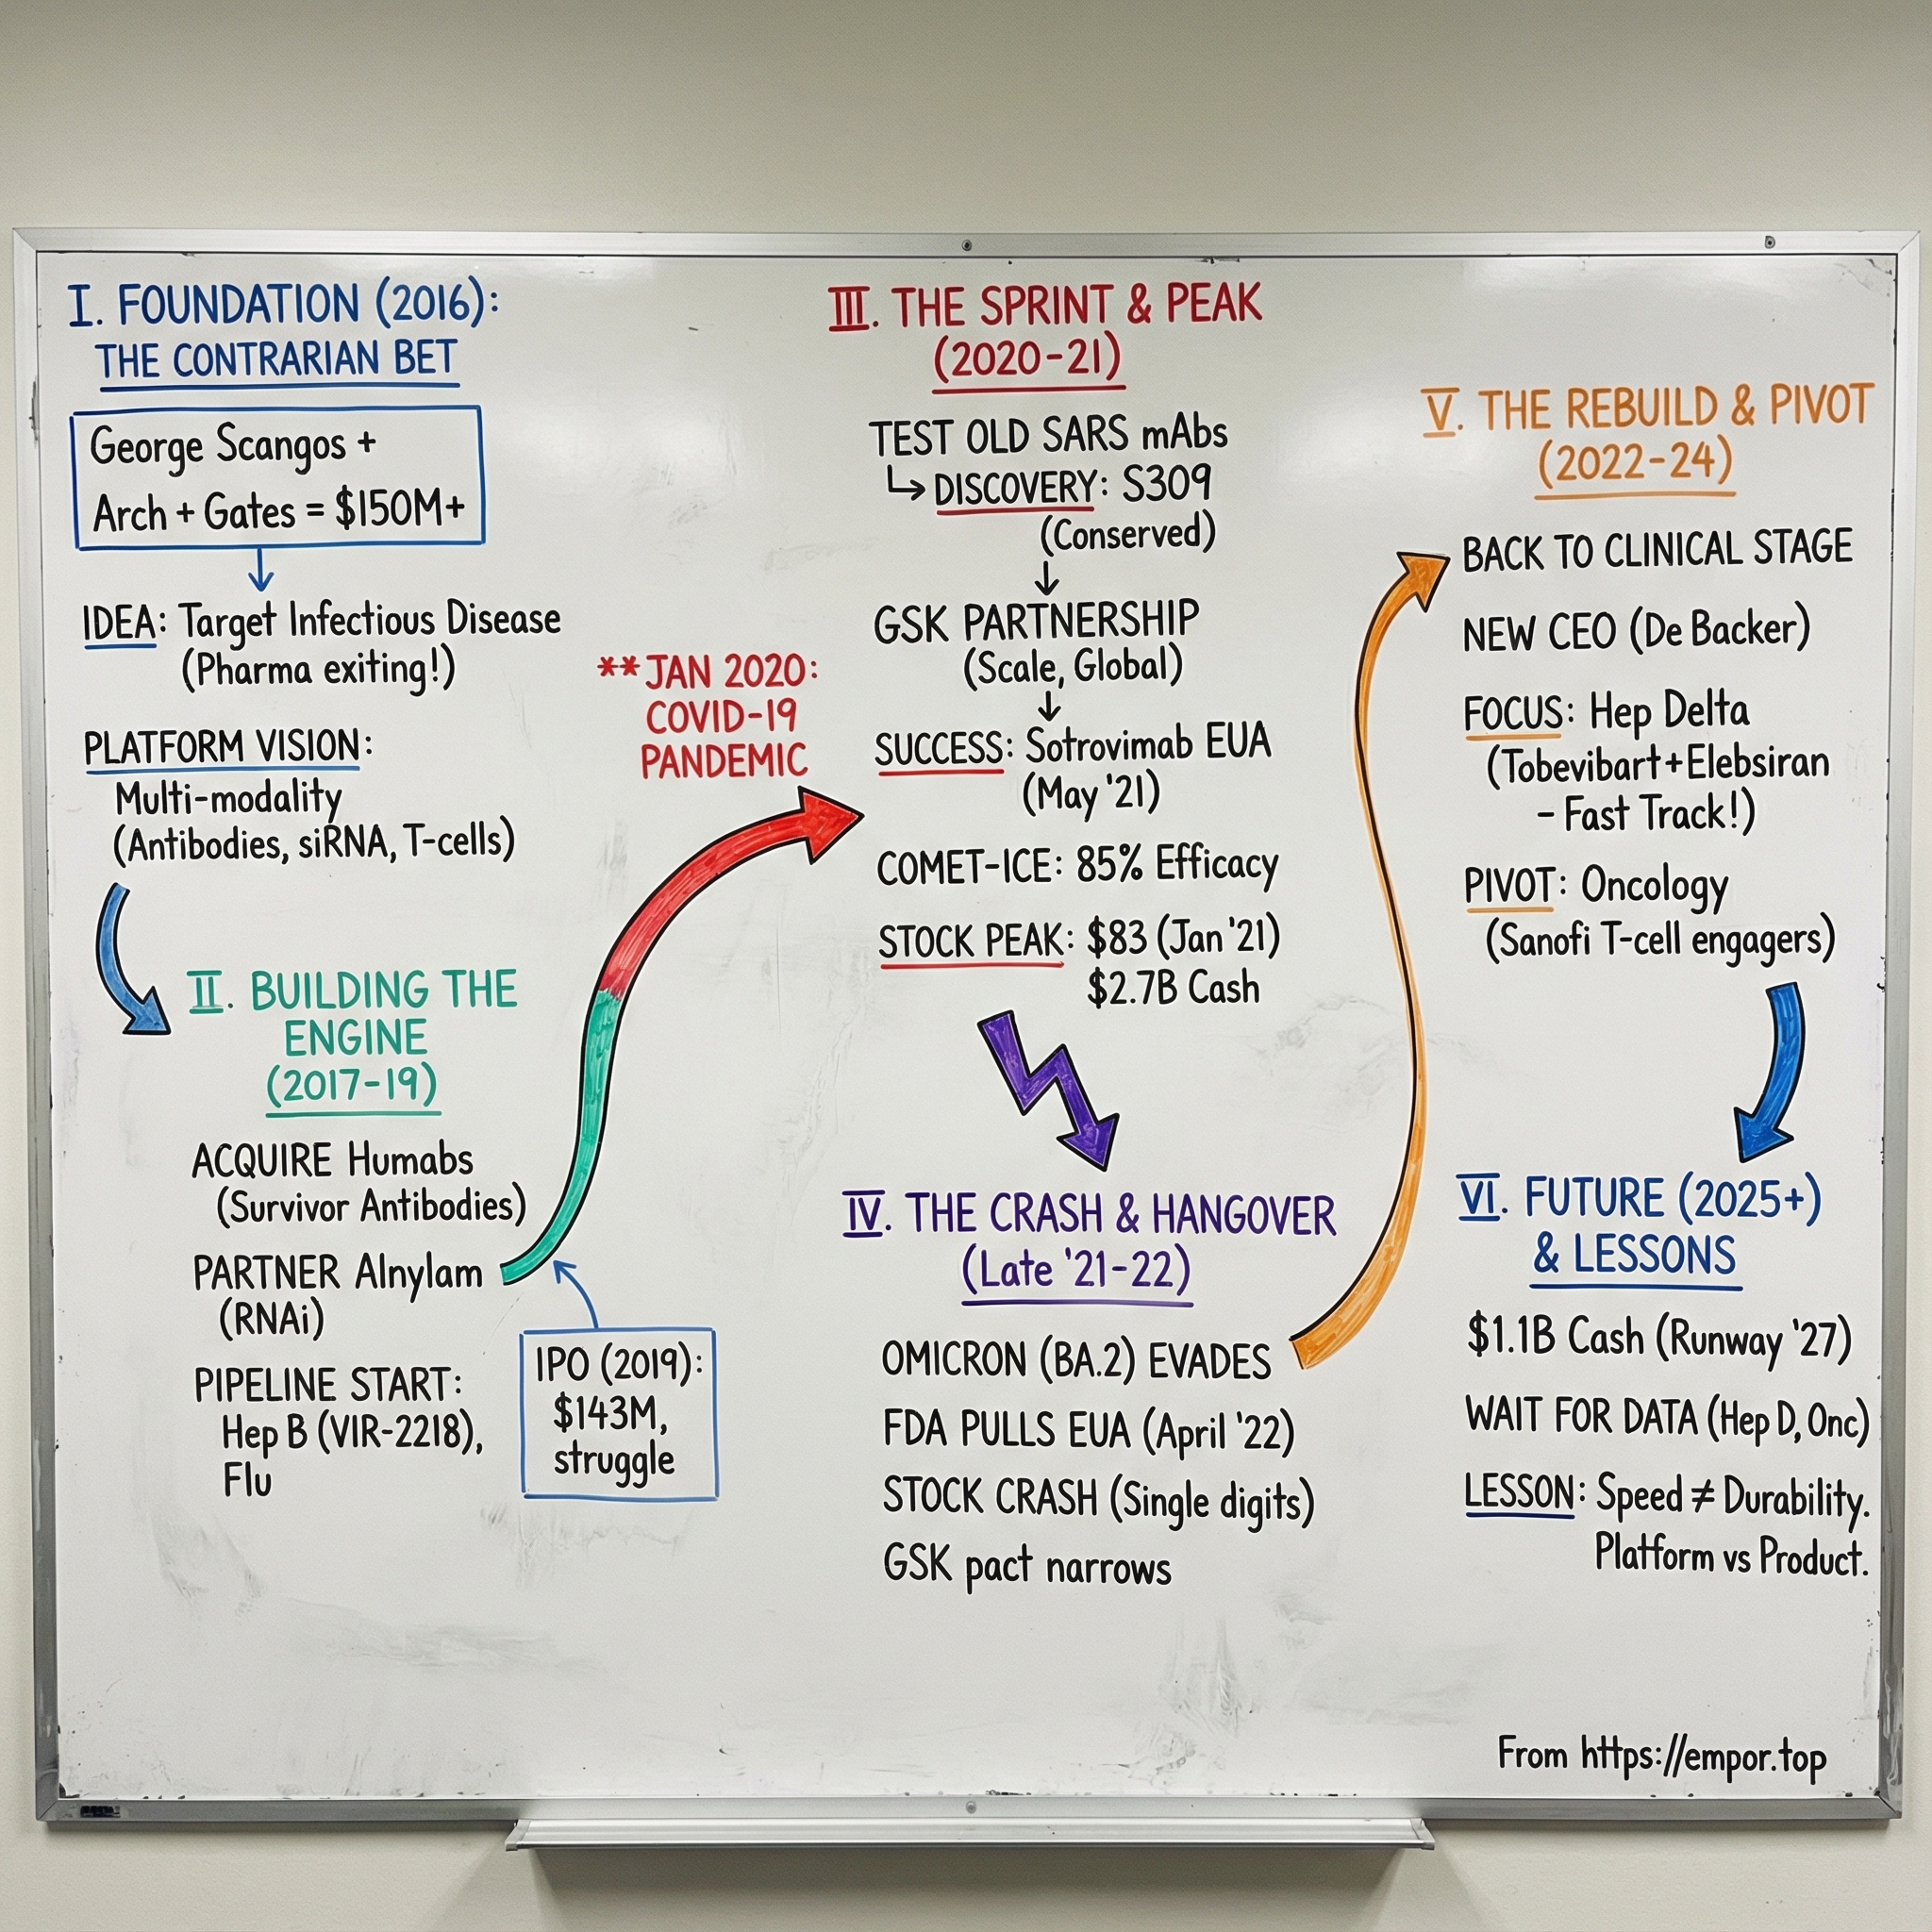 I. FOUNDATION (2016):
THE CONTRARIAN BET
George Scangos +
Arch + Gates = $150M+
IDEA: Target Infectious Disease
(Pharma exiting!)
PLATFORM VISION:
Multi-modality
(Antibodies, siRNA, T-cells)
II. BUILDING THE
ENGINE
(2017-19)
ACQUIRE Humabs
(Survivor Antibodies)
PARTNER Alnylam
(RNAi)
PIPELINE START:
Hep B (VIR-2218),
Flu
IPO (2019):
$143M,
struggle
**JAN 2020:
COVID-19
PANDEMIC
III. THE SPRINT & PEAK
(2020-21)
TEST OLD SARS mAbs
↳ DISCOVERY: S309
(Conserved)
GSK PARTNERSHIP
(Scale, Global)
SUCCESS: Sotrovimab EUA
(May '21)
COMET-ICE: 85% Efficacy
STOCK PEAK: $83 (Jan '21)
$2.7B Cash
IV. THE CRASH & HANGOVER
(Late '21-22)
OMICRON (BA.2) EVADES
FDA PULLS EUA (April '22)
STOCK CRASH (Single digits)
GSK pact narrows
V. THE REBUILD & PIVOT
(2022-24)
BACK TO CLINICAL STAGE
NEW CEO (De Backer)
FOCUS: Hep Delta
(Tobevibart+Elebsiran
- Fast Track!)
PIVOT: Oncology
(Sanofi T-cell engagers)
VI. FUTURE (2025+)
& LESSONS
$1.1B Cash (Runway '27)
WAIT FOR DATA (Hep D, Onc)
LESSON: Speed ≠ Durability.
Platform vs Product.
From https://empor.top